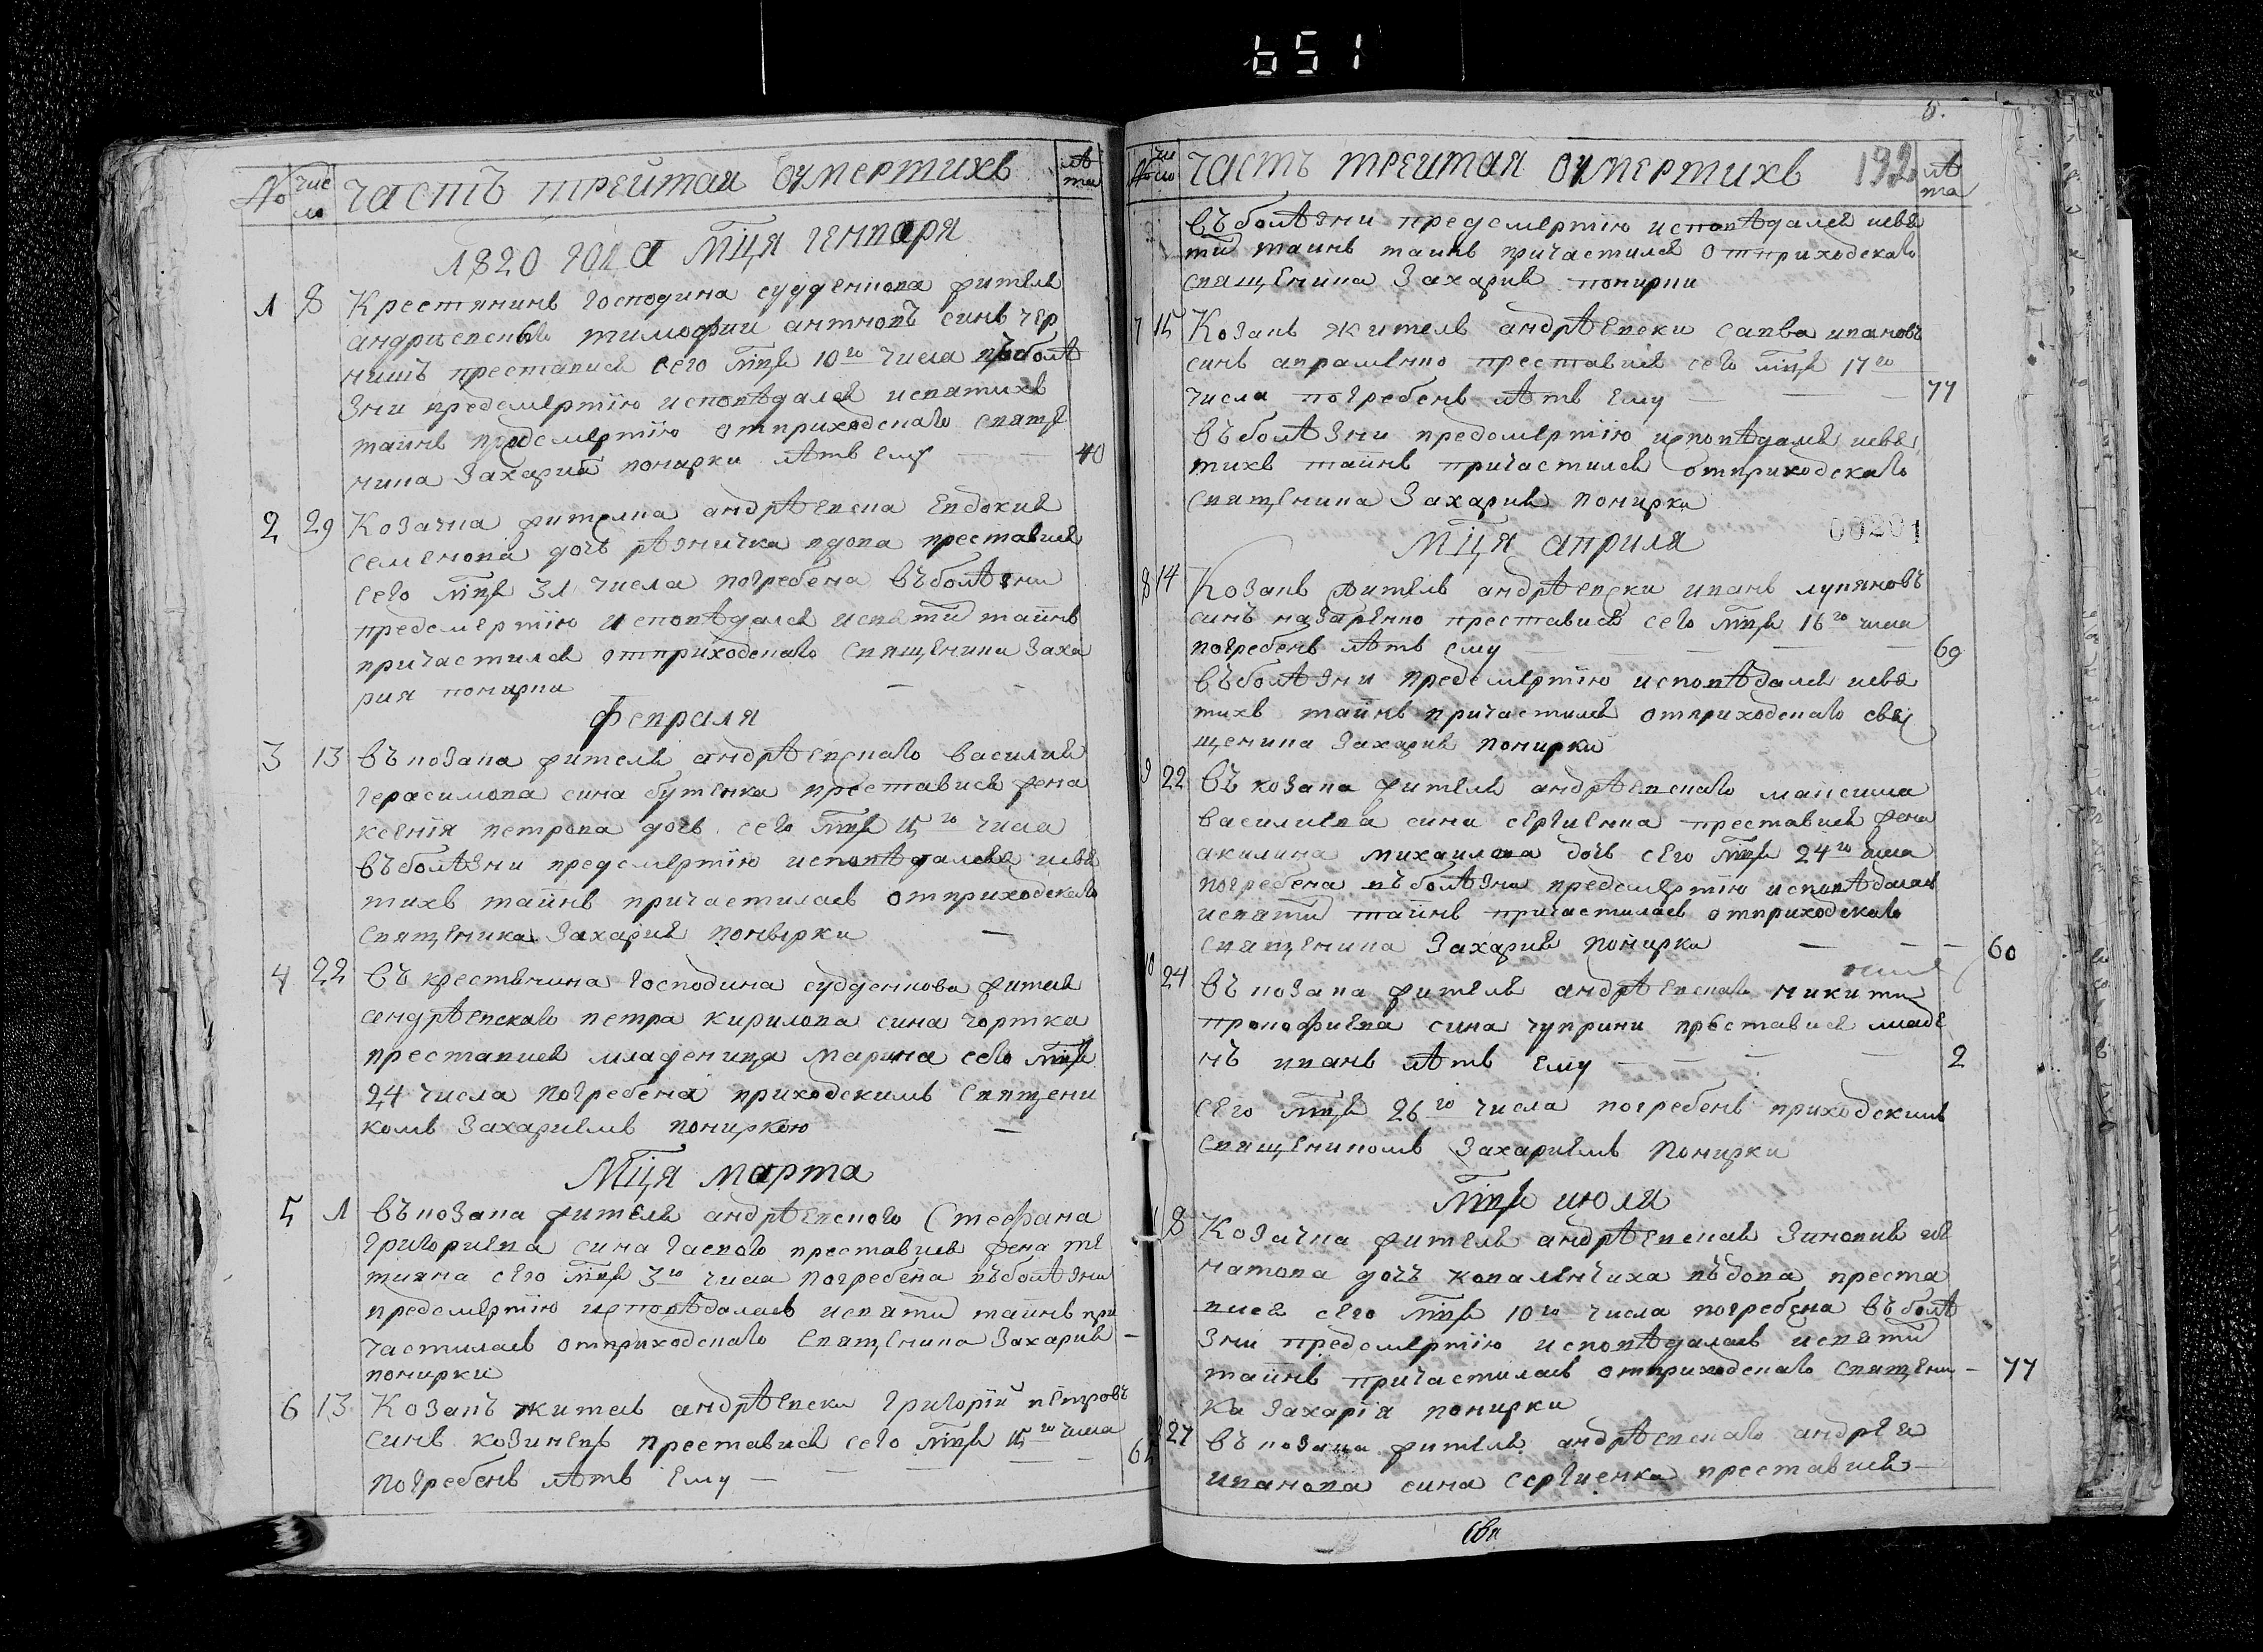 651
№ чис
ло часть трейтая оумертихъ лѣ
та
1820 года мця генваря
1 8 Крестянинъ господина судденкова жителя
андриевского тимофии антновъ синъ чер
нишъ преставися сего мця 10го числа въболѣ
зни предсмертію исповѣдался исвятихъ
таинъ предсмертію отприходскаго священ
ника Захария понирки лѣтъ ему 40
2 29 Козачка жителка андрѣевска Евдокия
семенова дочь рѣзничка вдова преставися
сего мця 31 числа погребена въболѣзни
предсмертію исповѣдалея исвяти таинъ
причастилея отприходскаго священика Заха
рия понирки
Февраля
3 13 въ козака жителя андрѣевскаго василия
герасимова сина бутенка преставися жена
ксения петрова дочь сего мця 15го числа
въболѣзни предсмертію исповѣдалея исвя
тихъ таинъ причастилась отприходскаго
священика Захария понырки
4 22 въ крестянина господина судденкова жителя
андрѣевскаго петра кирилова сина чортка
преставися младеница марина сего мця
24 числа погребена приходскимъ священи
комъ Захариемъ ониркою
Мця марта
5 1 въ козака жителя андрѣевского Стефана
григориева сина гаевого преставися жена те
тияна сего мця 3го числа погребена въболѣзни
предсмертію исповѣдалась исвяти таинъ при
частилась отприходскаго священика Захария
понирки
6 13 Козакъ житель андрѣевски григорій петровъ
синъ козинецъ преставися сего мця 15го числа
погребенъ лѣтъ ему 65
8.
№ чи
сло часть трейтая оумертихъ 192 лѣ
та
въболѣзни предсмертію исповѣдался исвя
ти таинъ таинъ причастился отприходскаго
священика Захария понирки
7 15 Козакъ житель андрѣевски савва ивановъ
синъ авраменко преставися сего мця 17го
числа погребенъ лѣтъ ему 77
въболѣзни предсмертію исповѣдалея исвя
тихъ таинъ причастился отприходскаго
священика Захария понирки
00201
Мця априля
8 14 Козакъ житель андрѣевски иванъ лукяновъ
синъ назаренко преставися сего мця 16го числа
погребенъ лѣтъ ему 69
въболѣзни предсмертію исповѣдалея исвя
тихъ таинъ причастился отприходскаго свя
щеника Захария понирки
9 22 въ козака жителя андрѣевскаго максима
василиева сина сергиенка преставися жена
акилина михаилова дочь сего мця 24го числа
погребена въболѣзни предсмертію исповѣдалася
исвяти таинъ причастилась отприходскаго
священика Захария понирки 60
10 24 въ козака жителя андрѣевскаго никити
прокофиева сина чуприни преставися младе
нъ иванъ лѣтъ ему 2
сего мця 26го числа погребенъ приходскимъ
священикомъ Захариемъ Понирки
мця июля
8 Козачка жителя андрѣевская Зиновия иг
натова дочь коваленчиха въдова преста
вися сего мця 10го числа погребена въболѣ
зни предсмертію исповѣдалась исвяти
таинъ причастилась отприходскаго священи 77
ка Захарія понирки
27 въ козака жителя андрѣевскаго андрея
иванова сина сергиенка преставися